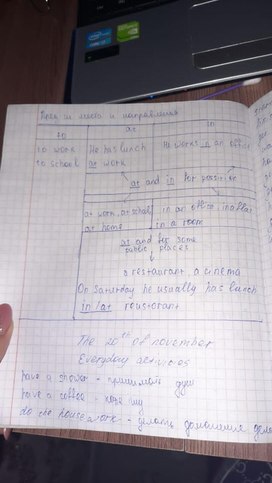 места и направления
to at in
to work He has lunch He works in an office
to school at work
at and in for position
at work, at school in an office, in a flat
at home in a room
at and for some
public places
a restaurant, a cinema
On Saturday he usually has lunch
in/at restorant
The 20th of november
Everyday activities
have a shower - принимать душ
have a coffee -
do the housework - делать домашние дела